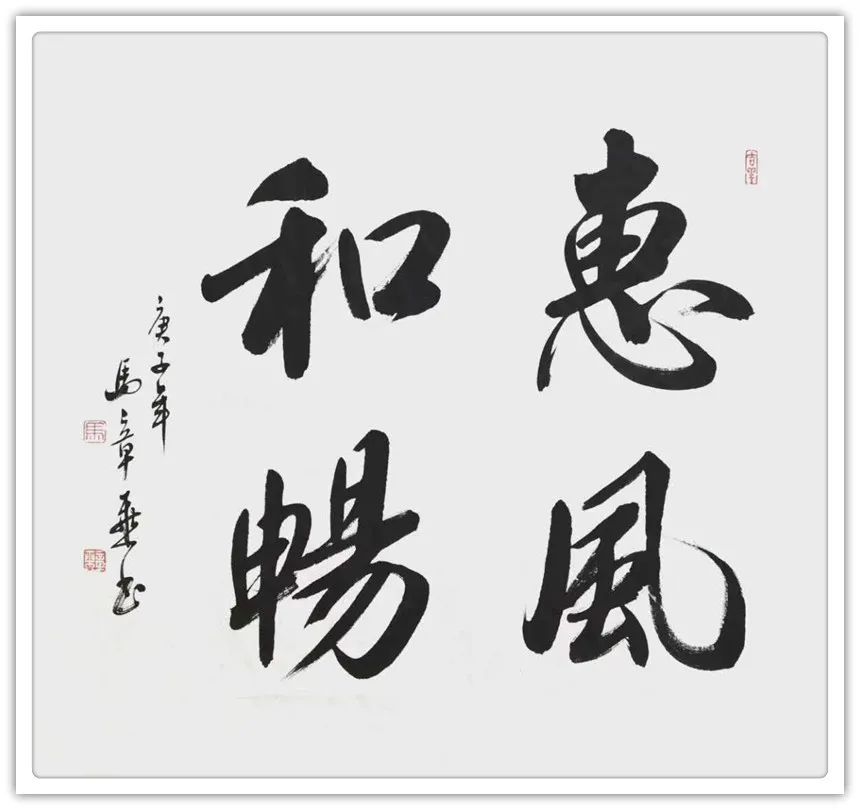 惠風
和暢
庚子年
馬章乘书